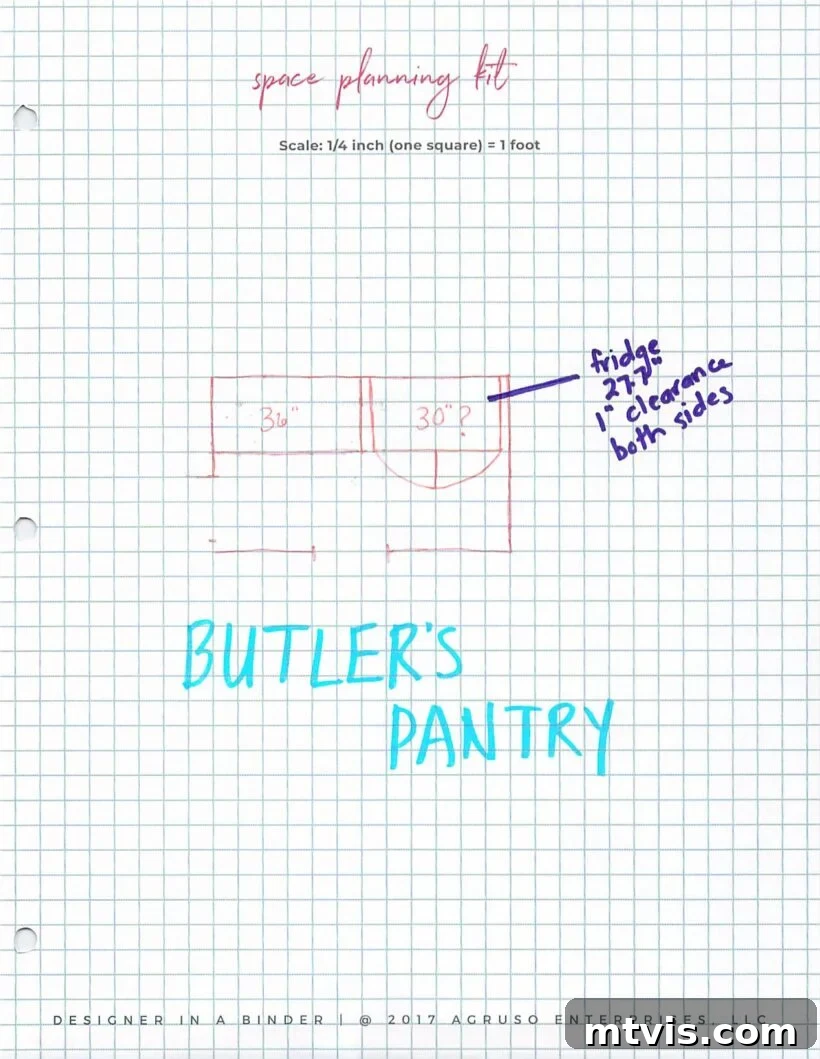 space planning kit
Scale: 1/4 inch (one square) = 1 foot
fridge
27.7"
1" clearance
both sides
36"
30"?
BUTLER'S
PANTRY
DESIGNER IN A BINDER | @ 2017 AGRUSO ENTERPRISES, LLC
mtvis.com